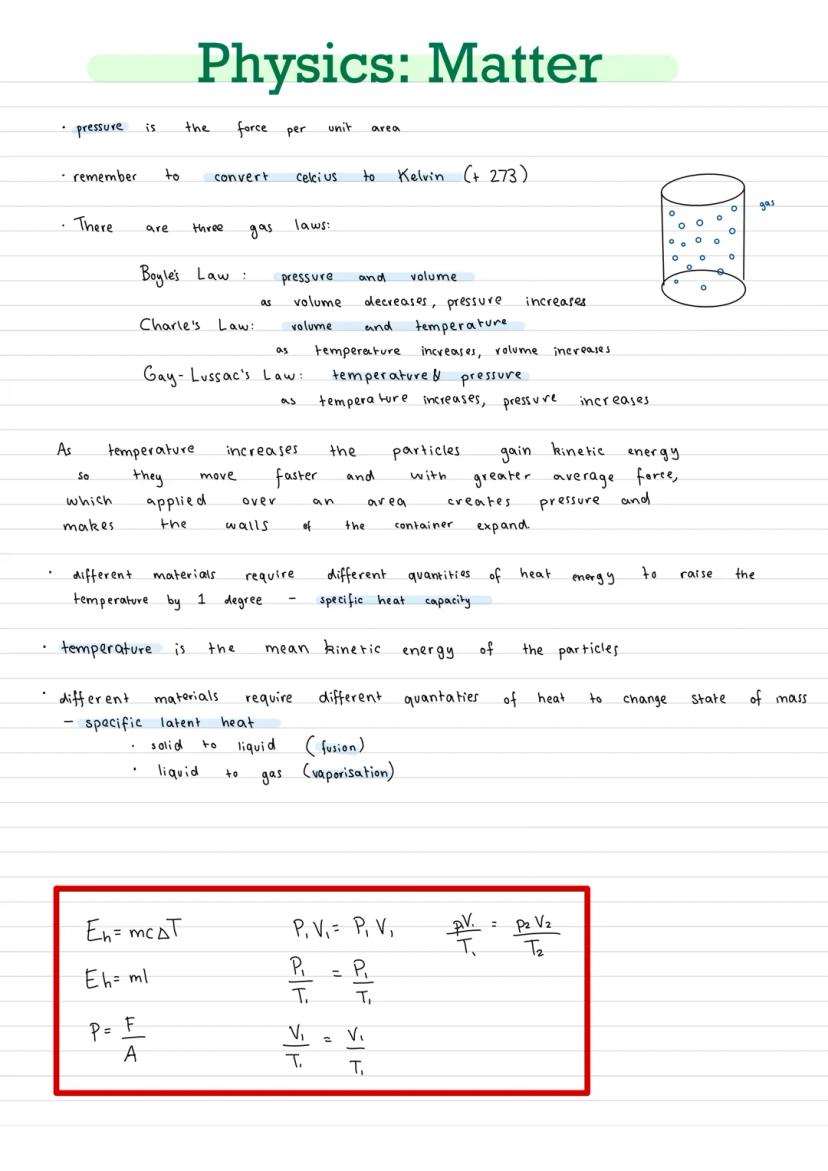 Physics: Matter
· pressure is the force per unit area
· remember to convert celcius to Kelvin (+ 273)
gas
· There are three gas laws:
Boyle's Law : pressure and volume
as volume decreases, pressure increases
Charle's Law: volume and temperature
as temperature increases, volume increases
Gay-Lussac's Law: temperature & pressure
as temperature increases, pressure increases
As temperature increases the particles gain kinetic energy
so they move faster and with greater average force,
which applied over an area creates pressure and
makes the walls of the container expand.
· different materials require different quantities of heat energy to raise the
temperature by 1 degree - specific heat capacity
· temperature is the mean kinetic energy of the particles
· different materials require different quantaties of heat to change state of mass
- specific latent heat
· solid to liquid (fusion)
· liquid to gas (vaporisation)
Eh = mcΔT P₁V₁ = P₁V₁ pV₁/T₁ = p₂V₂/T₂
Eh = ml P₁/T₁ = P₁/T₁
P = F/A V₁/T₁ = V₁/T₁